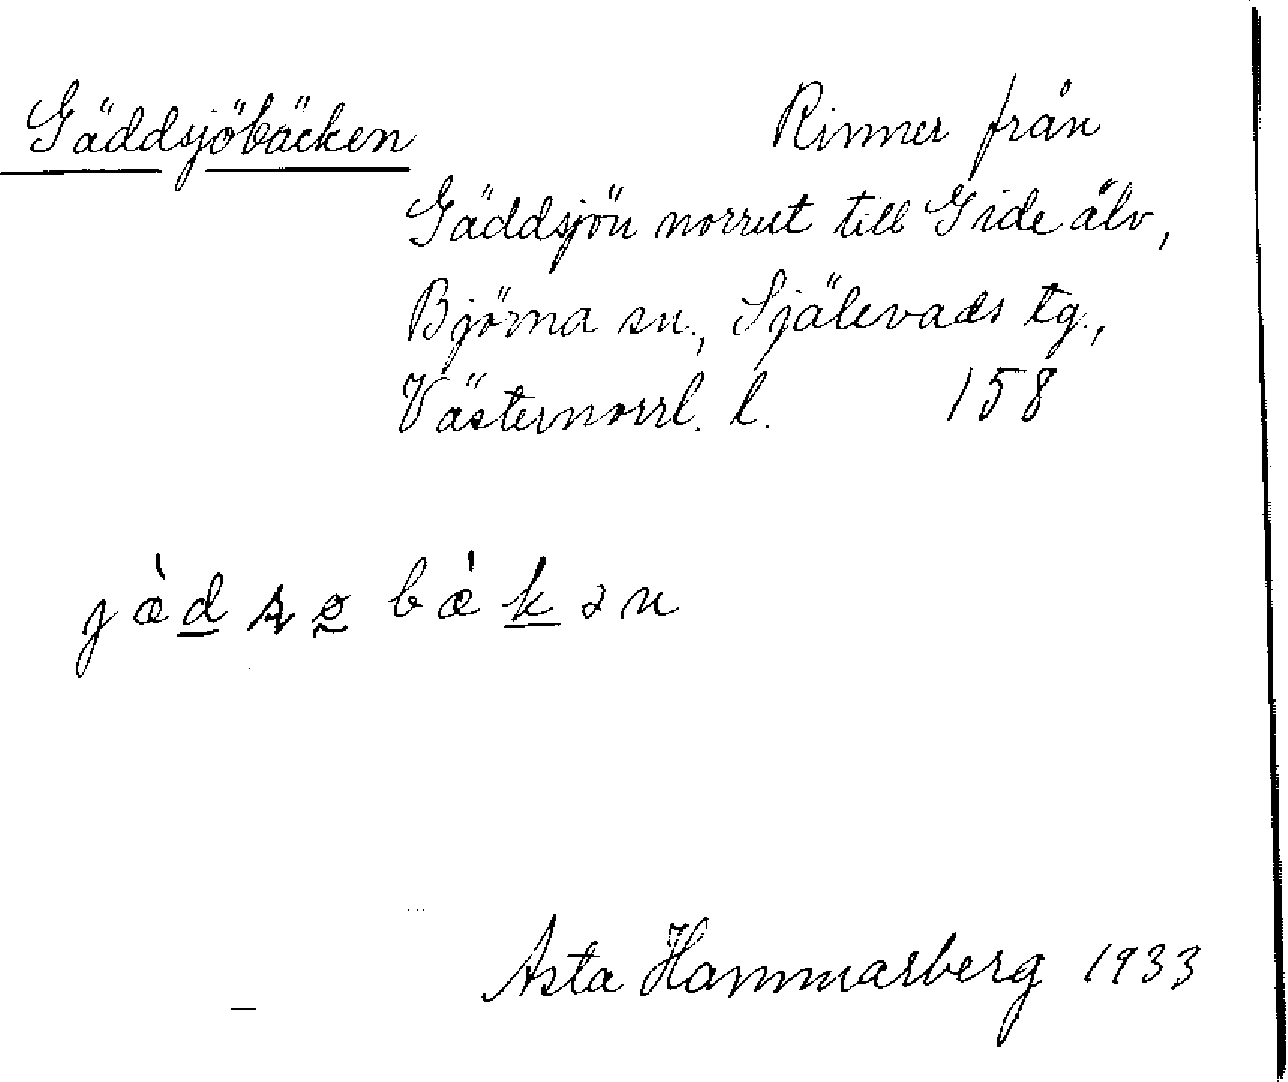 Gäddsjöbäcken Rinner från
Gäddsjön norrut till Gide älv,
Björna sn., Själevads tg.,
Västernorrl. l. 158
Asta Hammarberg 1933